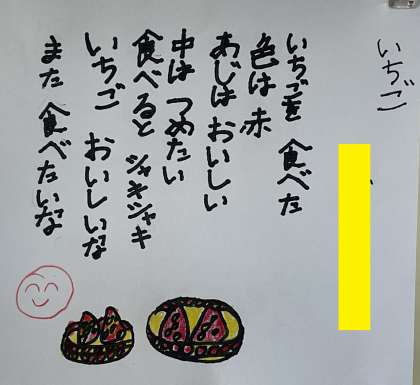 いちご
いちごを 食べた
色は 赤
あじは おいしい
中は つめたい
食べると シャキシャキ
いちご おいしいな
また 食べたいな